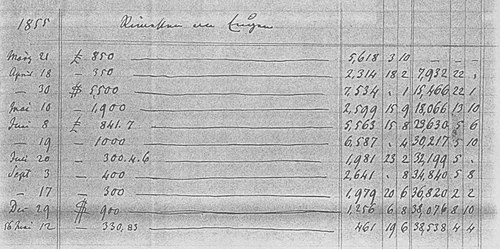 1855
März 21 £ 850 5,618 3 10 – –
April 18 – 350 2,314 18 2 7,932 22 .
– 30 $ 5,500 7,534 . 1 15,466 22 1
Mai 10 – 1,900 2,599 15 9 18,066 13 10
Juni 8 £ 841.7 5,563 15 8 23,630 5 6
– 19 – 1000 6,587 . 4 30,217 5 10
Juli 20 – 300.4.6 1,981 23 2 32,199 5 .
Sept 3 – 400 2,641 . 8 34,840 5 8
– 17 – 300 1,979 20 6 36,820 2 2
Dec 29 $ 900 1,256 6 8 38,076 8 10
56 12 – 330,83 461 19 6 38,538 4 4